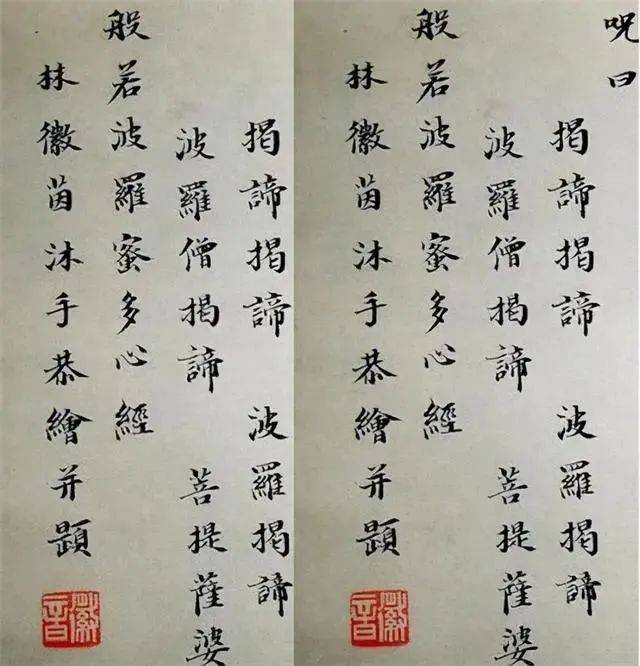 呪曰
揭諦揭諦 波羅揭諦
波羅僧揭諦 菩提薩婆
般若波羅蜜多心經
林徽茵沐手恭繪并題
徽音
揭諦揭諦 波羅揭諦
波羅僧揭諦 菩提薩婆
般若波羅蜜多心經
林徽茵沐手恭繪并題
徽音